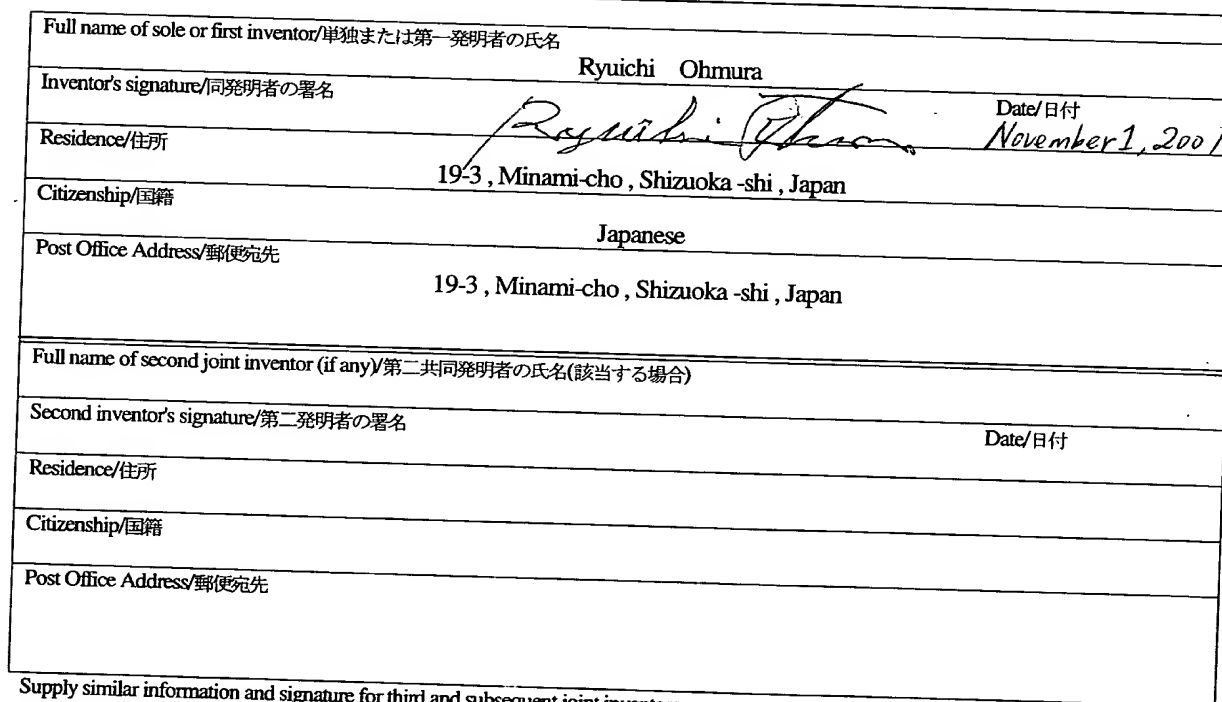 Full name of sole or first inventor/単独または第一発明者の氏名
Ryuichi Ohmura
Inventor's signature/同発明者の署名
Ryuichi Ohmura
Date/日付
November 1, 2001
Residence/住所
19-3 , Minami-cho , Shizuoka -shi , Japan
Citizenship/国籍
Japanese
Post Office Address/郵便宛先
19-3 , Minami-cho , Shizuoka -shi , Japan
Full name of second joint inventor (if any)/第二共同発明者の氏名(該当する場合)
Second inventor's signature/第二発明者の署名
Date/日付
Residence/住所
Citizenship/国籍
Post Office Address/郵便宛先
Supply similar information and signature for third and subsequent joint